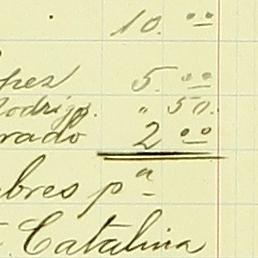 10. 00
pez 5. 00
Rodrigz. " 50.
rado 2 00
bres pª
Catalina